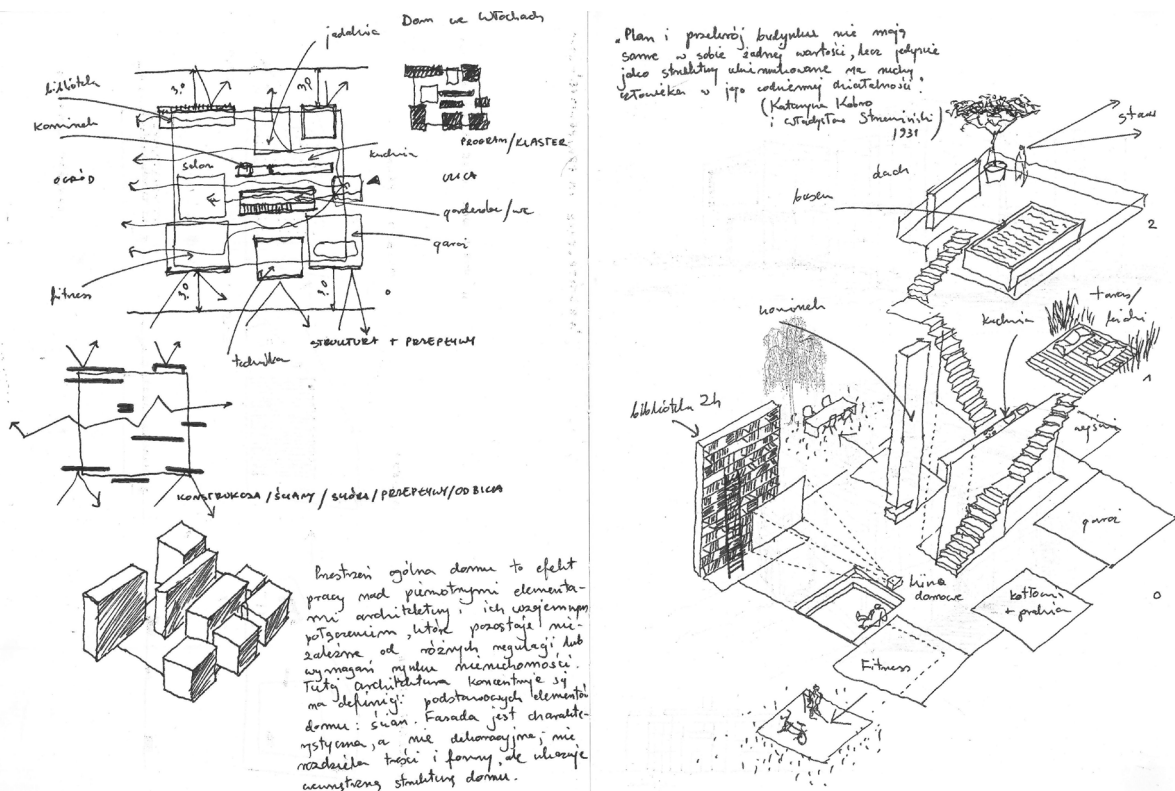 Dom we Włochach
jadalnia
biblioteka
3.0
3.0
kominek
kuchnia
PROGRAM/KLASTER
salon
OGRÓD
ULICA
garderoba/wc
garaż
fitness
3.0
3.0
technika
STRUKTURA + PRZEPŁYWY
KONSTRUKCJA/ŚCIANY/SKÓRA/PRZEPŁYWY/ODBICIA
Przestrzeń ogólna domu to efekt
pracy nad pierwotnymi elementa-
mi architektury i ich wzajemnym
połączeniem, które pozostaje nie-
zależne od różnych regulacji lub
wymagań rynku nieruchomości.
Tutaj architektura koncentruje się
na definicji podstawowych elementów
domu: ścian. Fasada jest charakte-
rystyczna, a nie dekoracyjna; nie
rozdziela treści i formy, ale ukazuje
wewnętrzną strukturę domu.
„Plan i przekrój budynku nie mają
same w sobie żadnej wartości, lecz jedynie
jako struktury ukierunkowane na ruchy
człowieka w jego codziennej działalności."
(Katarzyna Kobro
i Władysław Strzemiński
1931)
staw
dach
basen
2
kominek
kuchnia
taras/
1
biblioteka 2h
wejście
garaż
kino
domowe
kotłownia
+ pralnia
0
Fitness